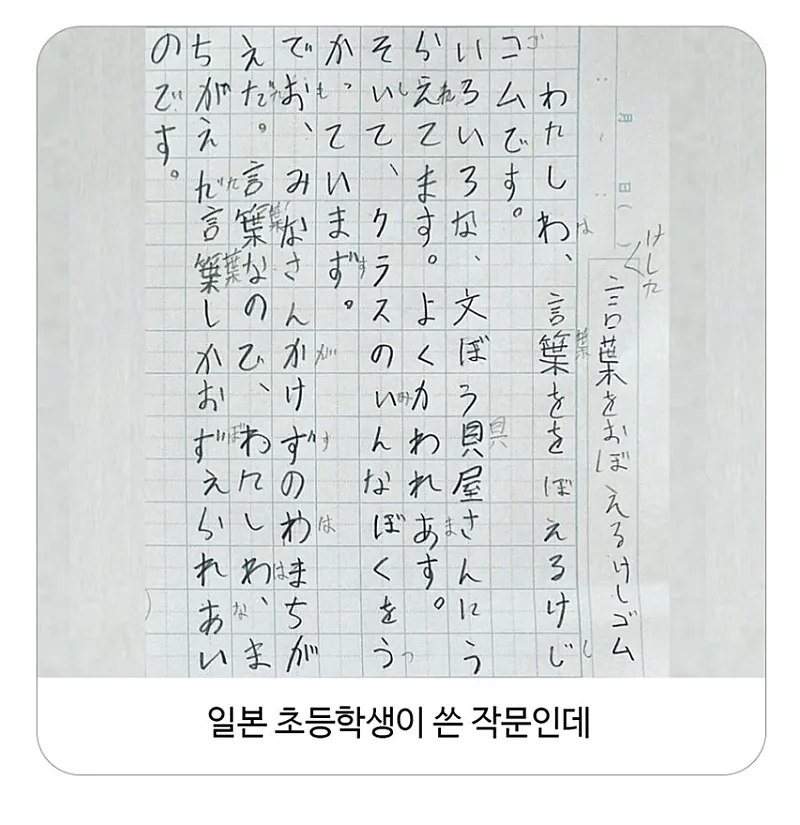 月 日(
けした
言葉をおぼえるけしゴム
は 葉 し
わたしわ、言葉ををぼえるけじ
ゴ
コムです。
具
いろいろな、文ぼう貝屋さんにう
れ ま
らえてます。よくかわれあす。
し み つ
そいて、クラスのいんなぼくをう
っ す
か、ていまず。
も が す は
でお、みなさんかけずのわまちが
た 葉 は
えだ。言葉なので、わたしわ、ま
た 葉 ぼ な
ちがえだ言葉しかおずえられあい
のです。
일본 초등학생이 쓴 작문인데